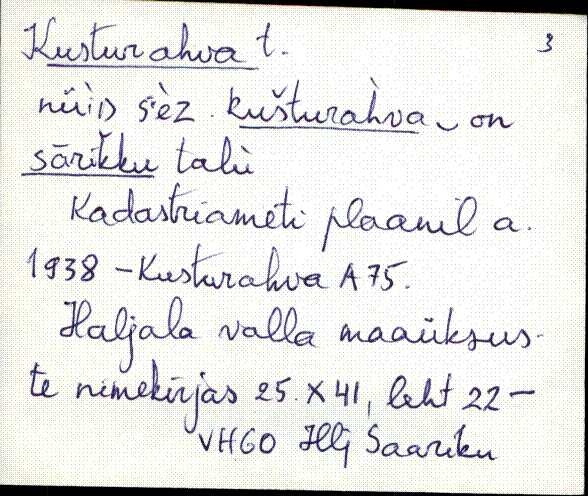 Kusturahva t. 3
nüiD s'èz. kušturahva on
sārikku talù
Kadastriameti plaanil a.
1938 – Kusturahva A 75.
Haljala valla maaüksus-
te nimekirjas 25. X 41, leht 22 –
VHGO Hlj Saariku